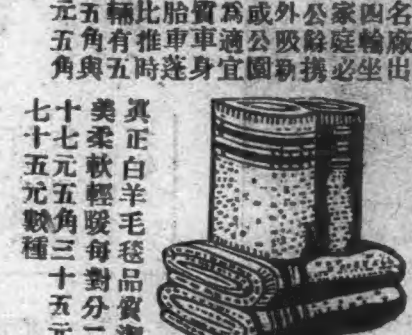 名廠出
四輪坐
家庭必
公餘攜
外吸新
或公園
爲適宜
質車身
胎車蓬
比推時
輛有五
五角與
元五角
眞正白羊毛毯品質
美柔軟輕暖每對分
十七元五角三十五元
七十五元數種